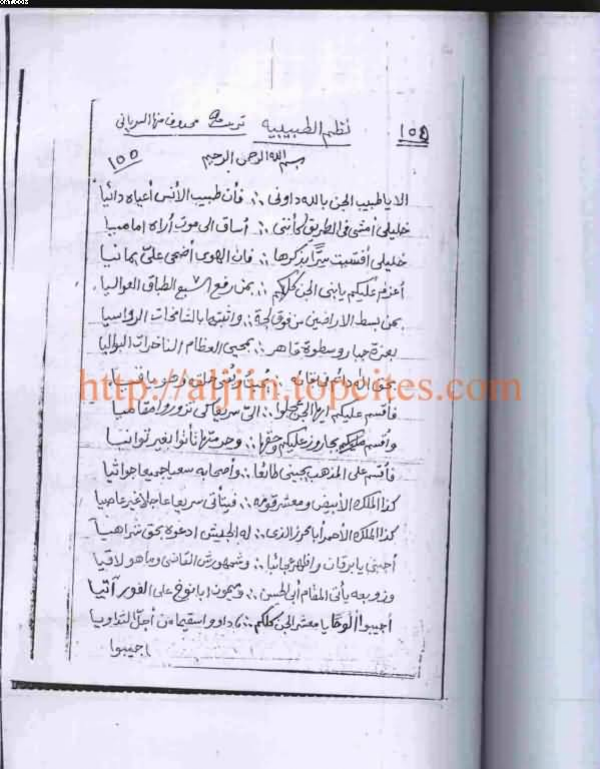 نظم الطبيبيه
١٥٤
١٥٥
بسم الله الرحمن الرحيم
الا يا طبيب الجن بالله داونى ∴ فأن طبيب الأنس أعياه دائيا
خليلى أمشى فى الطريق كأننى ∴ أساق الى موت أراه اماميا
خليلى أفشيت سرًّا بذكرها ∴ فان الهوى أضحى علىّ
أعزم عليكم يا بنى الجن كلهم ∴ بمن رفع السبع الطباق العواليا
بمن بسط الاراضين من فوق لجة ∴ واثبتها بالشامخات الرواسيا
بعزة جبار وسطوة قاهر ∴ بمحيى العظام الناخرات البواليا
http://aljiin.topcites.com
فاقسم عليكم ايها الجن عجلوا ∴ الىّ سريعا كى تزوروا مقاميا
وأقسم عليكم وحقها ∴ وحرمتها تأتوا بغير توانيا
فأقسم على المذهب يجيبنى طائعا ∴ وأصحابه سعيا جميعا جواثيا
كذا الملك الأبيض ومعشر قومه ∴ فيأتى سريعا عاجلا غير عاصيا
كذا الملك الأحمر أبا محرز الذى ∴ له الجيش ادعوه بحق شراهيا
أجبنى يا برقان واظهر ∴ وشمهورش القاضى وما هو لاقيا
وزوبعه يأتى المقام أبى الحسن ∴ وميمون ابا نوخ على الفور آتيا
أجيبوا ألوحًا يا معشر الجن كلكم ∴ داووا سقيما من أجل التداويا
اجيبوا